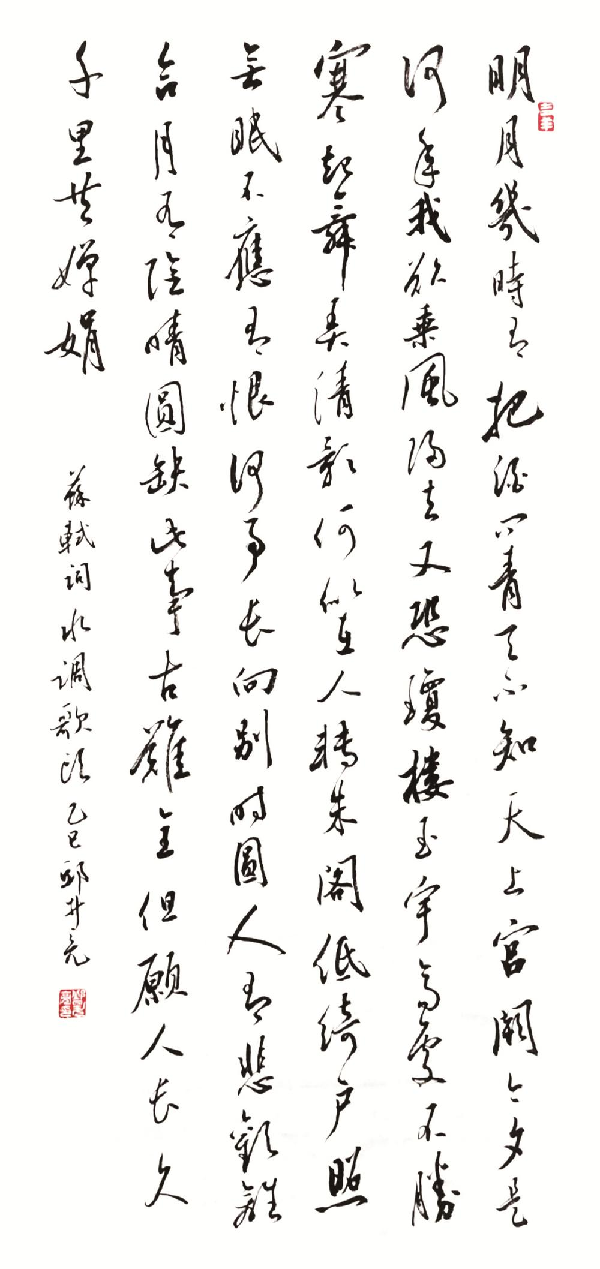 明月幾時有把酒問青天不知天上宮闕今夕是
何年我欲乘風歸去又恐瓊樓玉宇高處不勝
寒起舞弄清影何似在人轉朱閣低綺戶照
無眠不應有恨何事長向別時圓人有悲歡離
合月有陰晴圓缺此事古難全但願人長久
千里共嬋娟
蘇軾詞水調歌頭 乙巳邱井亮